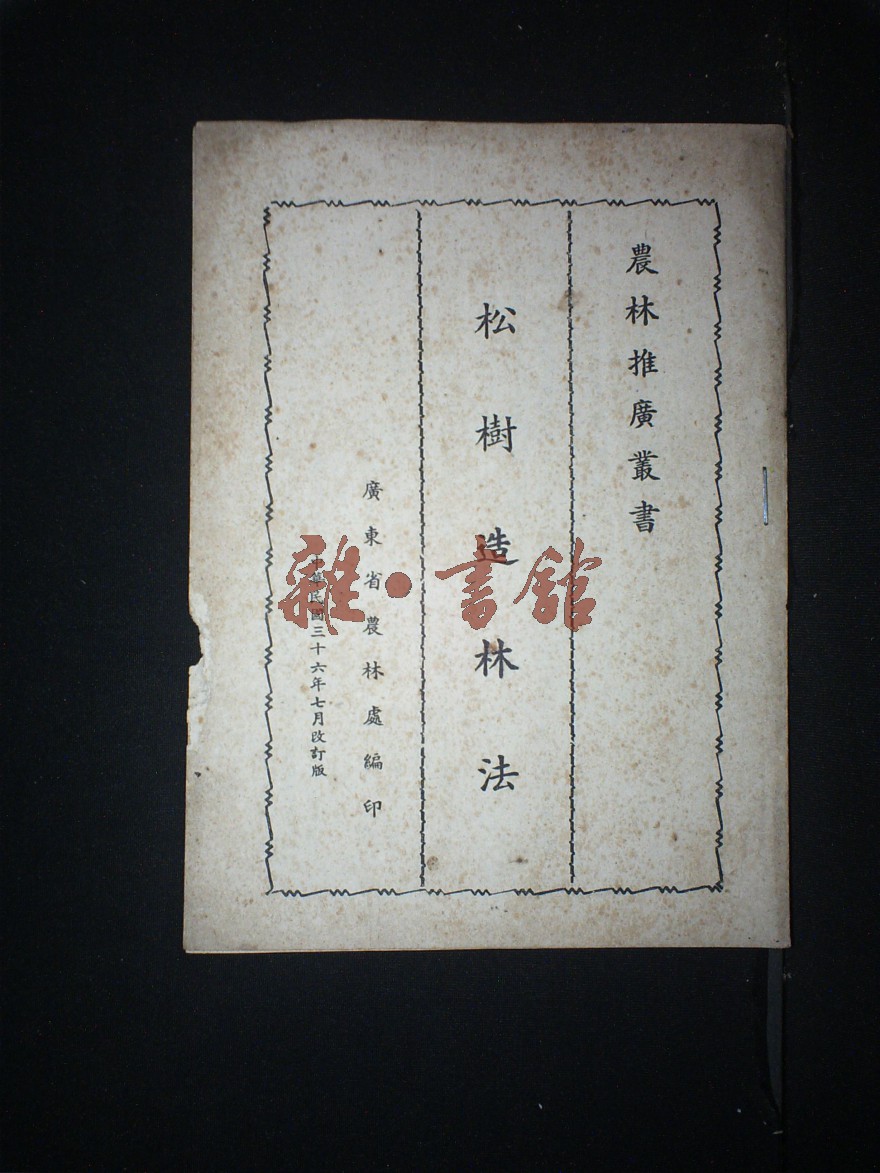 農林推廣叢書
松樹造林法
廣東省農林處編印
中華民國三十六年七月改訂版
雜·書館